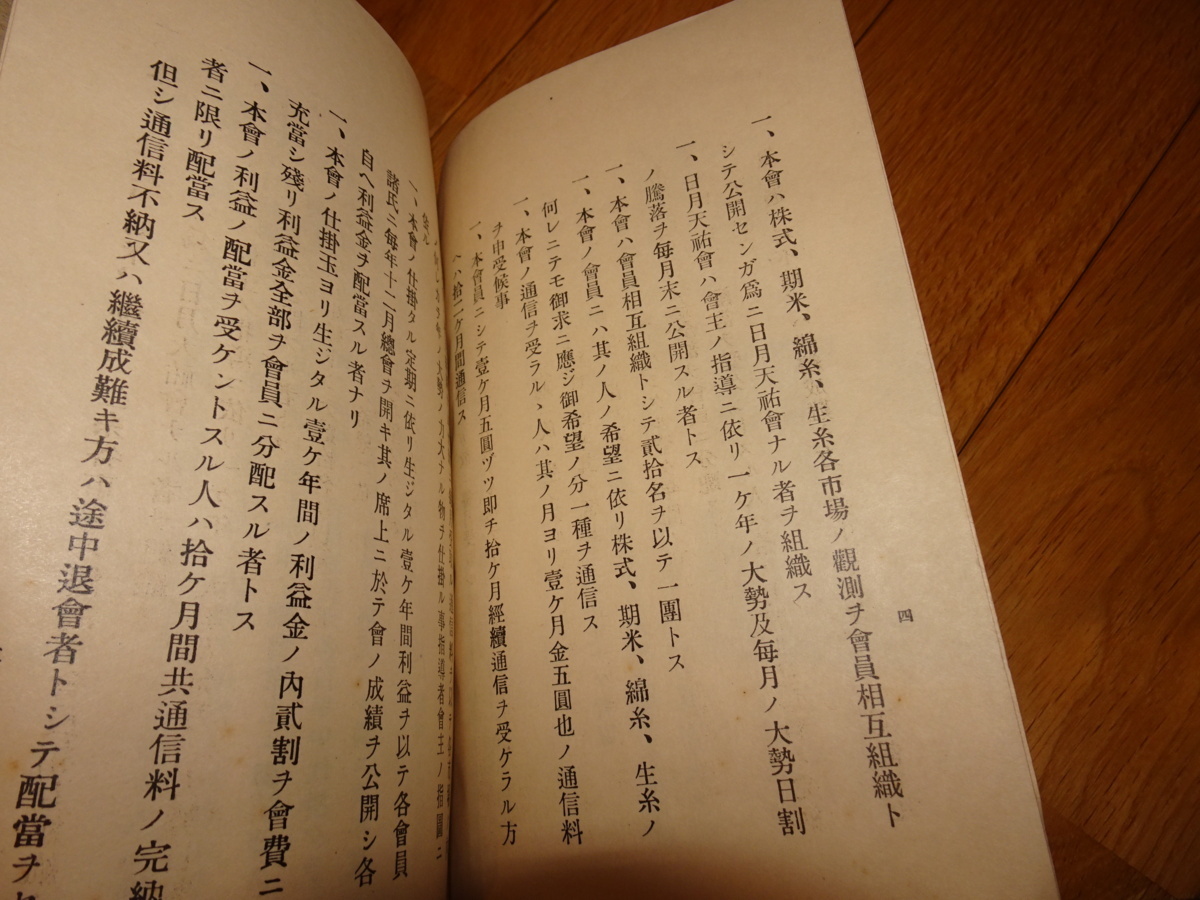 四
一、本會ハ株式、期米、綿糸、生糸各市場ノ觀測ヲ會員相互組織ト
シテ公開センガ爲ニ日月天祐會ナル者ヲ組織ス
一、日月天祐會ハ會主ノ指導ニ依リ一ケ年ノ大勢及毎月ノ大勢日割
ノ騰落ヲ毎月末ニ公開スル者トス
一、本會ハ會員相互組織トシテ貳拾名ヲ以テ一團トス
一、本會ノ會員ニハ其ノ人ノ希望ニ依リ株式、期米、綿糸、生糸ノ
何レニテモ御求ニ應ジ御希望ノ分一種ヲ通信ス
一、本會ノ通信ヲ受ラル、人ハ其ノ月ヨリ壹ケ月金五圓也ノ通信料
ヲ申受候事
一、本會員ニシテ壹ケ月五圓ヅツ即チ拾ケ月經續通信ヲ受ケラル方
ヘハ拾二ケ月間通信ス
ノ力大ナル物ヲ仕掛ル事指導者會主ノ指圖ニ
一、本會ノ仕掛タル定期ニ依リ生ジタル壹ケ年間利益ヲ以テ各會員
諸氏ニ毎年十二月總會ヲ開キ其ノ席上ニ於テ會ノ成績ヲ公開シ各
自ヘ利益金ヲ配當スル者ナリ
一、本會ノ仕掛玉ヨリ生ジタル壹ケ年間ノ利益金ノ內貳割ヲ會費ニ
充當シ殘リ利益金全部ヲ會員ニ分配スル者トス
一、本會ノ利益ノ配當ヲ受ケントスル人ハ拾ケ月間共通信料ノ完納
者ニ限リ配當ス
但シ通信料不納又ハ繼續成難キ方ハ途中退會者トシテ配當ヲ